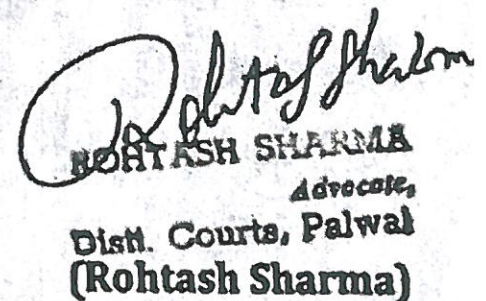 Rohtash Sharma
ROHTASH SHARMA
Advocate,
Distt. Courts, Palwal
(Rohtash Sharma)